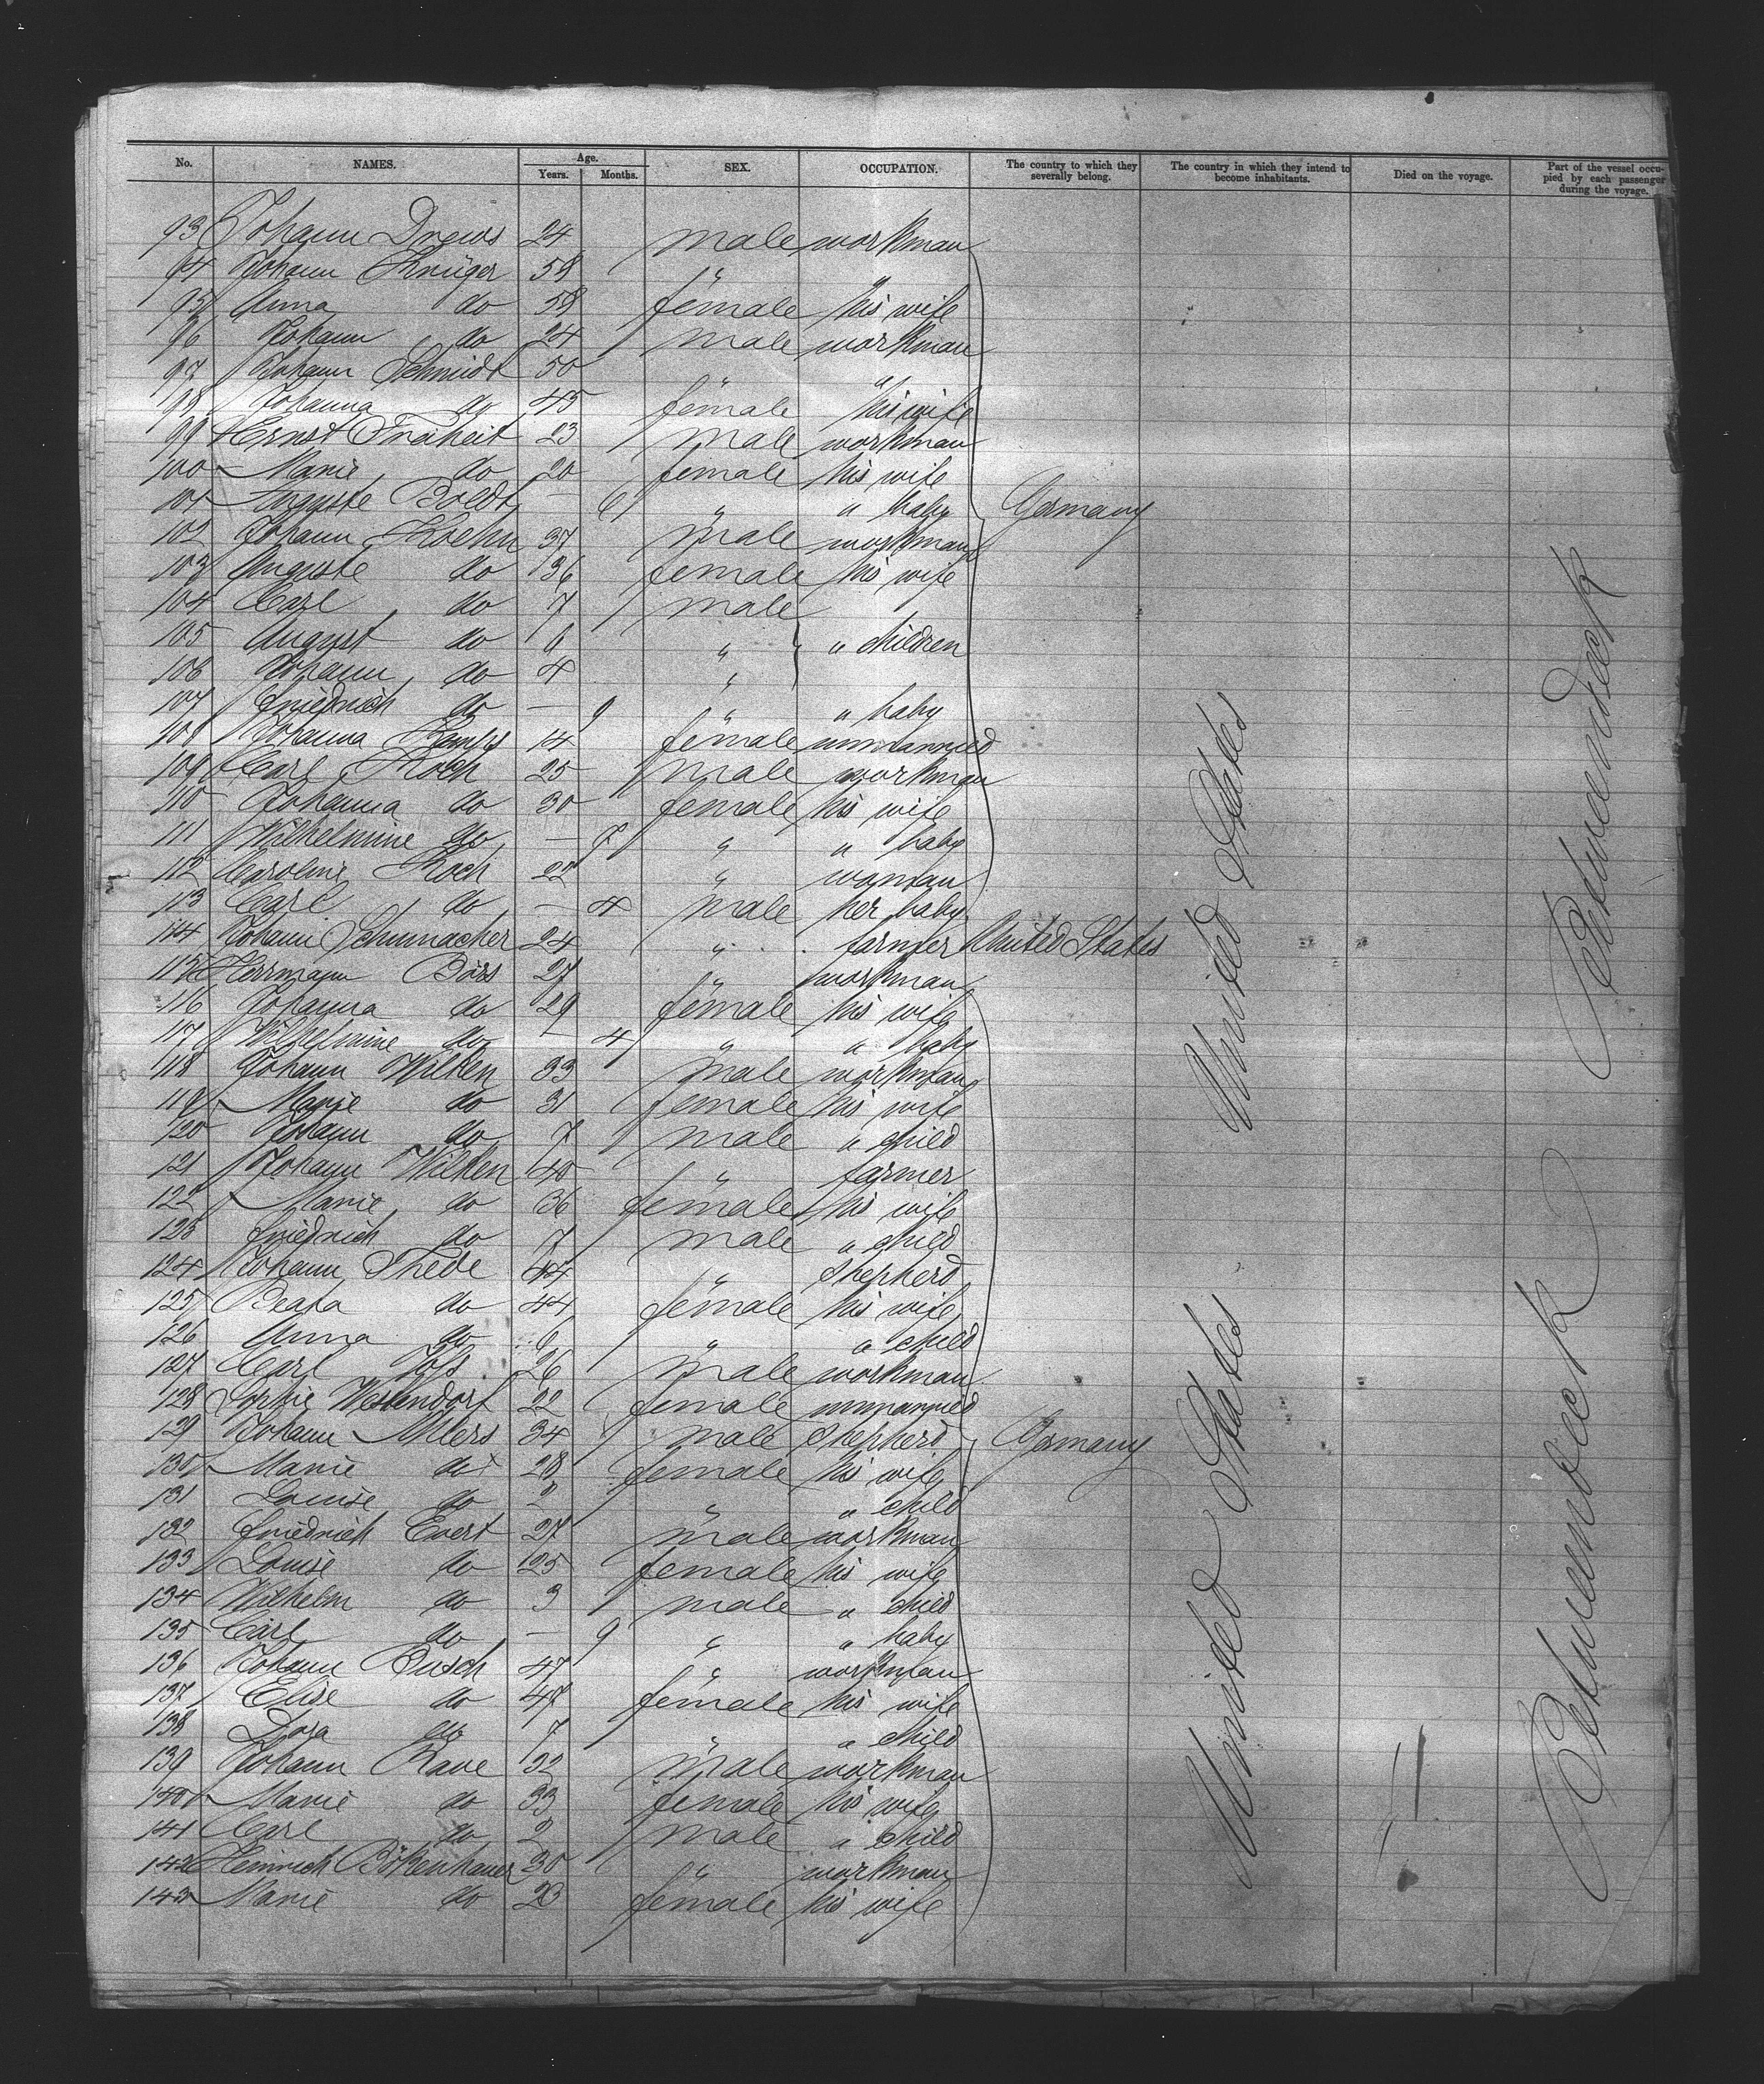 No. NAMES. Age. Years. Months. SEX. OCCUPATION. The country to which they severally belong. The country in which they intend to become inhabitants. Died on the voyage. Part of the vessel occupied by each passenger during the voyage.
93 Johann Drews 24 male workman
94 Johann Krüger 58 " "
95 Anna do 58 female his wife
96 Johann do 24 male workman
97 Johann Schmidt 50 " "
98 Johanna do 45 female his wife
99 Ernst Freiheit 23 male workman
100 Marie do 20 female his wife
101 Auguste Boldt — 6 " " baby Germany
102 Johann Koehn 37 male workman
103 Auguste do 36 female his wife
104 Carl do 7 male
105 August do 6 " " children
106 Johann do 4 "
107 Friedrich do — 9 " " baby
108 Johanna 14 female unmarried
109 Carl Koch 25 male workman
110 Johanna do 30 female his wife
111 Wilhelmine do — 7 " " baby
112 Caroline Koch 22 " woman
113 Carl do — 4 male her baby
114 Johann Schumacher 24 " farmer United States
115 Herrmann Börs 27 " workman
116 Johanna do 29 female his wife
117 Wilhelmine do — 4 " " baby
118 Johann Wilken 33 male workman
119 Marie do 31 female his wife
120 Johann do 7 male " child
121 Johann Wilken 40 " farmer
122 Marie do 36 female his wife
123 Friedrich do 7 male " child
124 Johann Thede 47 " shepherd
125 Beata do 44 female his wife
126 Anna do 6 " " child
127 Carl 26 male workman
128 Sophie Westendorf 22 female unmarried
129 Johann Ahlers 34 male shepherd Germany
130 Marie do 28 female his wife
131 Louise do 2 " " child
132 Friedrich Evert 27 male workman
133 Louise do 25 female his wife
134 Wilhelm do 3 male " child
135 Carl do — 9 " " baby
136 Johann Busch 47 " workman
137 Elise do 47 female his wife
138 Dora do 7 " " child
139 Johann Rave 32 male workman
140 Marie do 33 female his wife
141 Carl do 2 male " child
142 Heinrich Bökenhauer 30 " workman
143 Marie do 23 female his wife
United States
United States
Zwischendeck
Zwischendeck